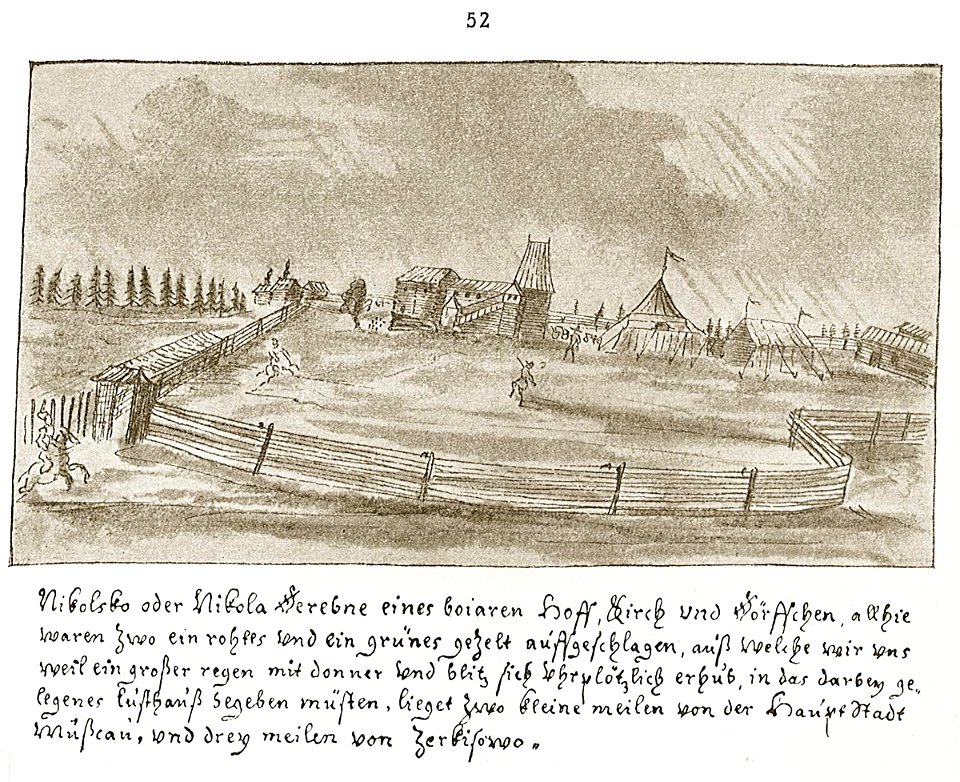 52
Nikolsko oder Nikola Derebne eines boiaren Hoff, Kirch vnd Dörffchen, allhie
waren zwo ein rohtes vnd ein grünes gezelt auffgeschlagen, auß welche wir vns
weil ein großer regen mit donner vnd blitz sich vhrplötzlich erhub, in das darbey ge-
legenes lusthauß begeben müsten, lieget zwo kleine meilen von der Haupt Stadt
Müßcau, vnd drey meilen von Zerkisowo.